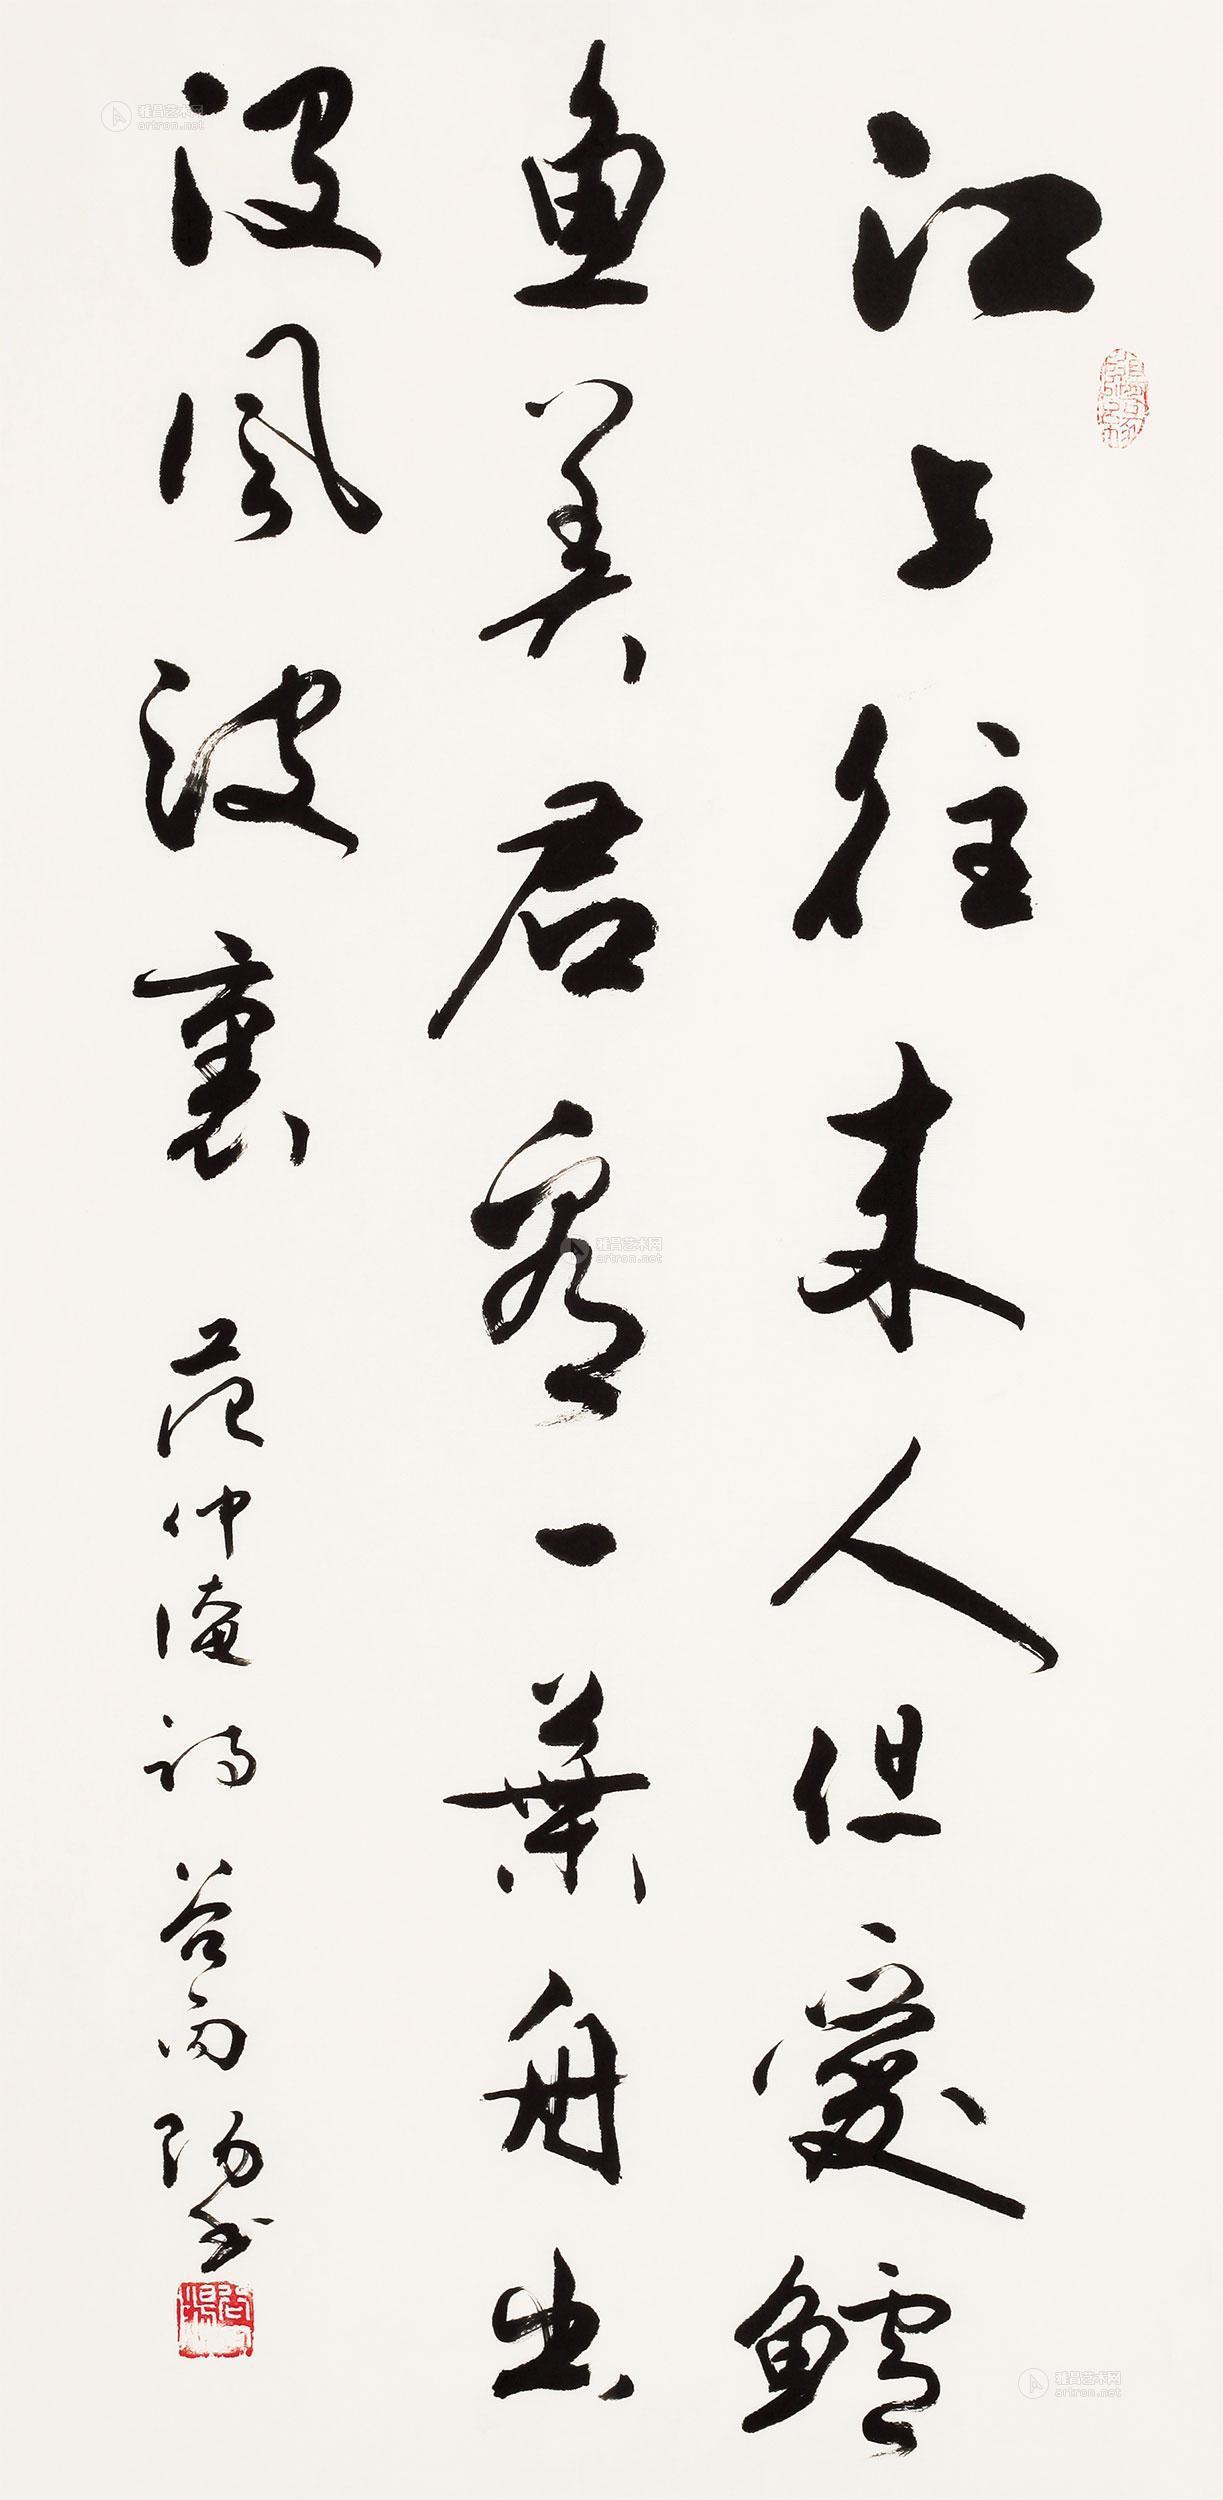 江上往来人但愛鱸
魚美君看一葉舟出
没風波裏
范仲淹詩 谷向陽書
雅昌艺术网
artron.net
雅昌艺术网
artron.net
雅昌艺术网
artron.net